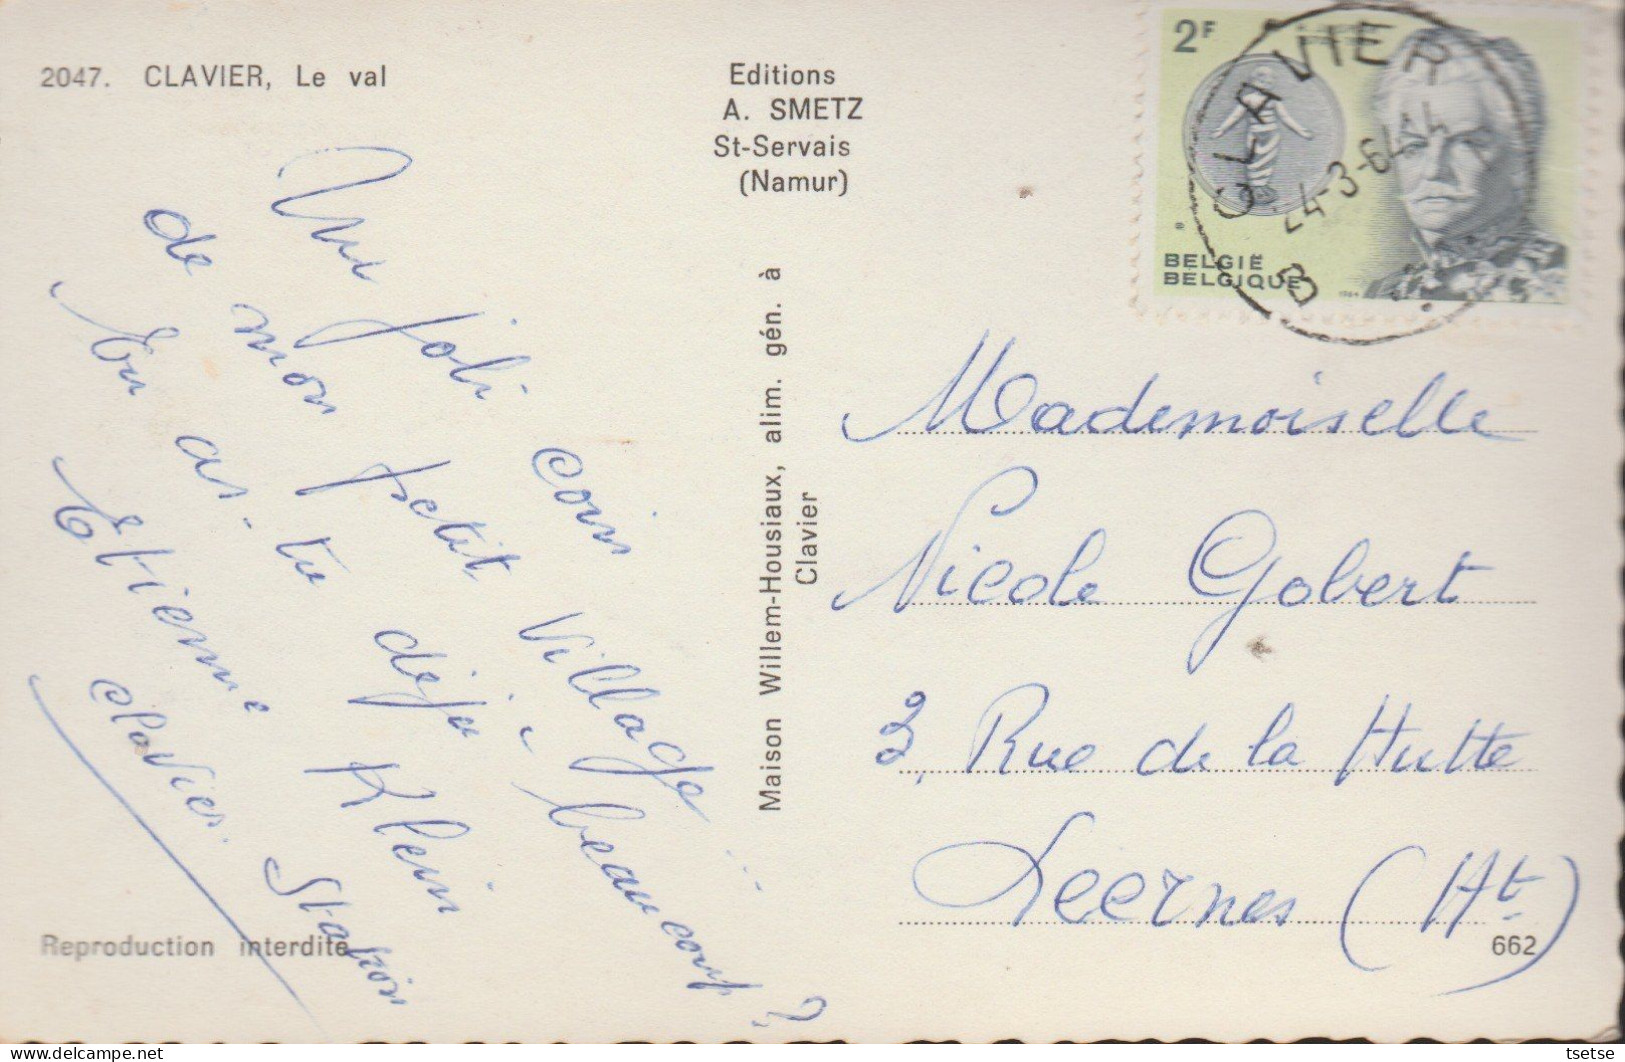 2047. CLAVIER, Le val
Editions
A. SMETZ
St-Servais
(Namur)
Un joli coin
de mon petit village...
En as-tu déjà beaucoup?
Etienne Klein
Clavier. Station
Reproduction interdite
Maison Willem-Housiaux, alim. gén. à
Clavier
2F
BELGIË
BELGIQUE
CLAVIER
24-3-64
B
Mademoiselle
Nicole Gobert
3, Rue de la Hutte
Leernes (Ht.)
662
tsetse